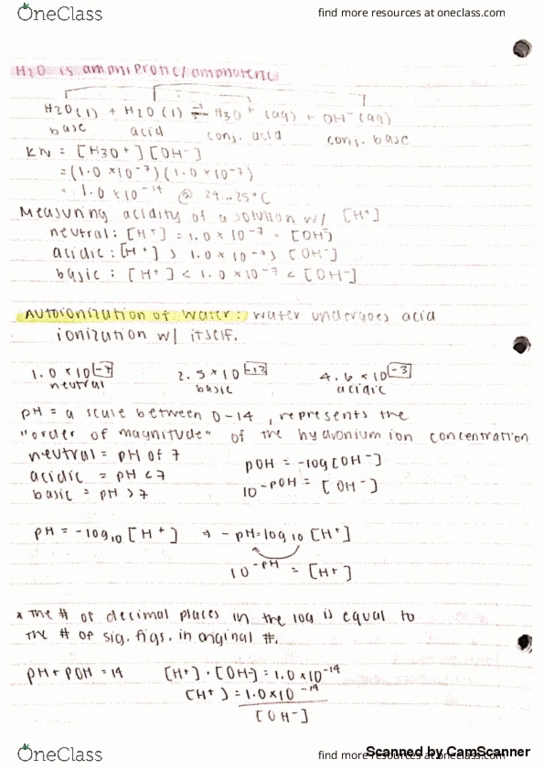 OneClass find more resources at oneclass.com
H2O is amphiprotic/amphoteric
H2O(l) + H2O(l) ⇌ H3O+ (aq) + OH- (aq)
base acid conj. acid conj. base
KW = [H3O+][OH-]
= (1.0 × 10^-7)(1.0 × 10^-7)
= 1.0 × 10^-14 @ 24...25°C
Measuring acidity of a solution w/ [H+]
neutral: [H+] = 1.0 × 10^-7 = [OH-]
acidic: [H+] > 1.0 × 10^-7 > [OH-]
basic: [H+] < 1.0 × 10^-7 < [OH-]
Autoionization of water: water undergoes acid
ionization w/ itself.
1.0 × 10^-7 2.5 × 10^-12 4.6 × 10^-3
neutral basic acidic
pH = a scale between 0-14, represents the
"order of magnitude" of the hydronium ion concentration
neutral = pH of 7 pOH = -log[OH-]
acidic = pH < 7 10^-pOH = [OH-]
basic = pH > 7
pH = -log10 [H+] → -pH = log10 [H+]
10^-pH = [H+]
* The # of decimal places in the log is equal to
the # of sig. figs. in original #.
pH + pOH = 14 [H+] · [OH-] = 1.0 × 10^-14
[H+] = 1.0 × 10^-14
[OH-]
OneClass find more resources at oneclass.com
Scanned by CamScanner